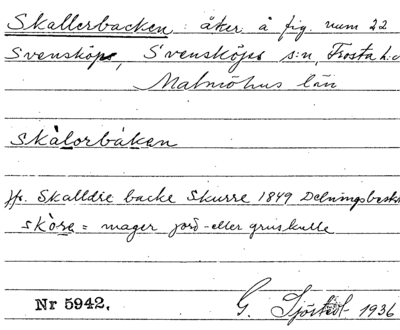 Skallerbacken : åker å fig. num 22
Svensköp, Svensköps s:n, Frosta h:d
Malmöhus län
skàlorbáken
jfr. Skalldre backe Skurre 1849 Delningsbeskr
skòre = mager jord- eller gruskulle
Nr 5942. G. Sjöstedt 1936